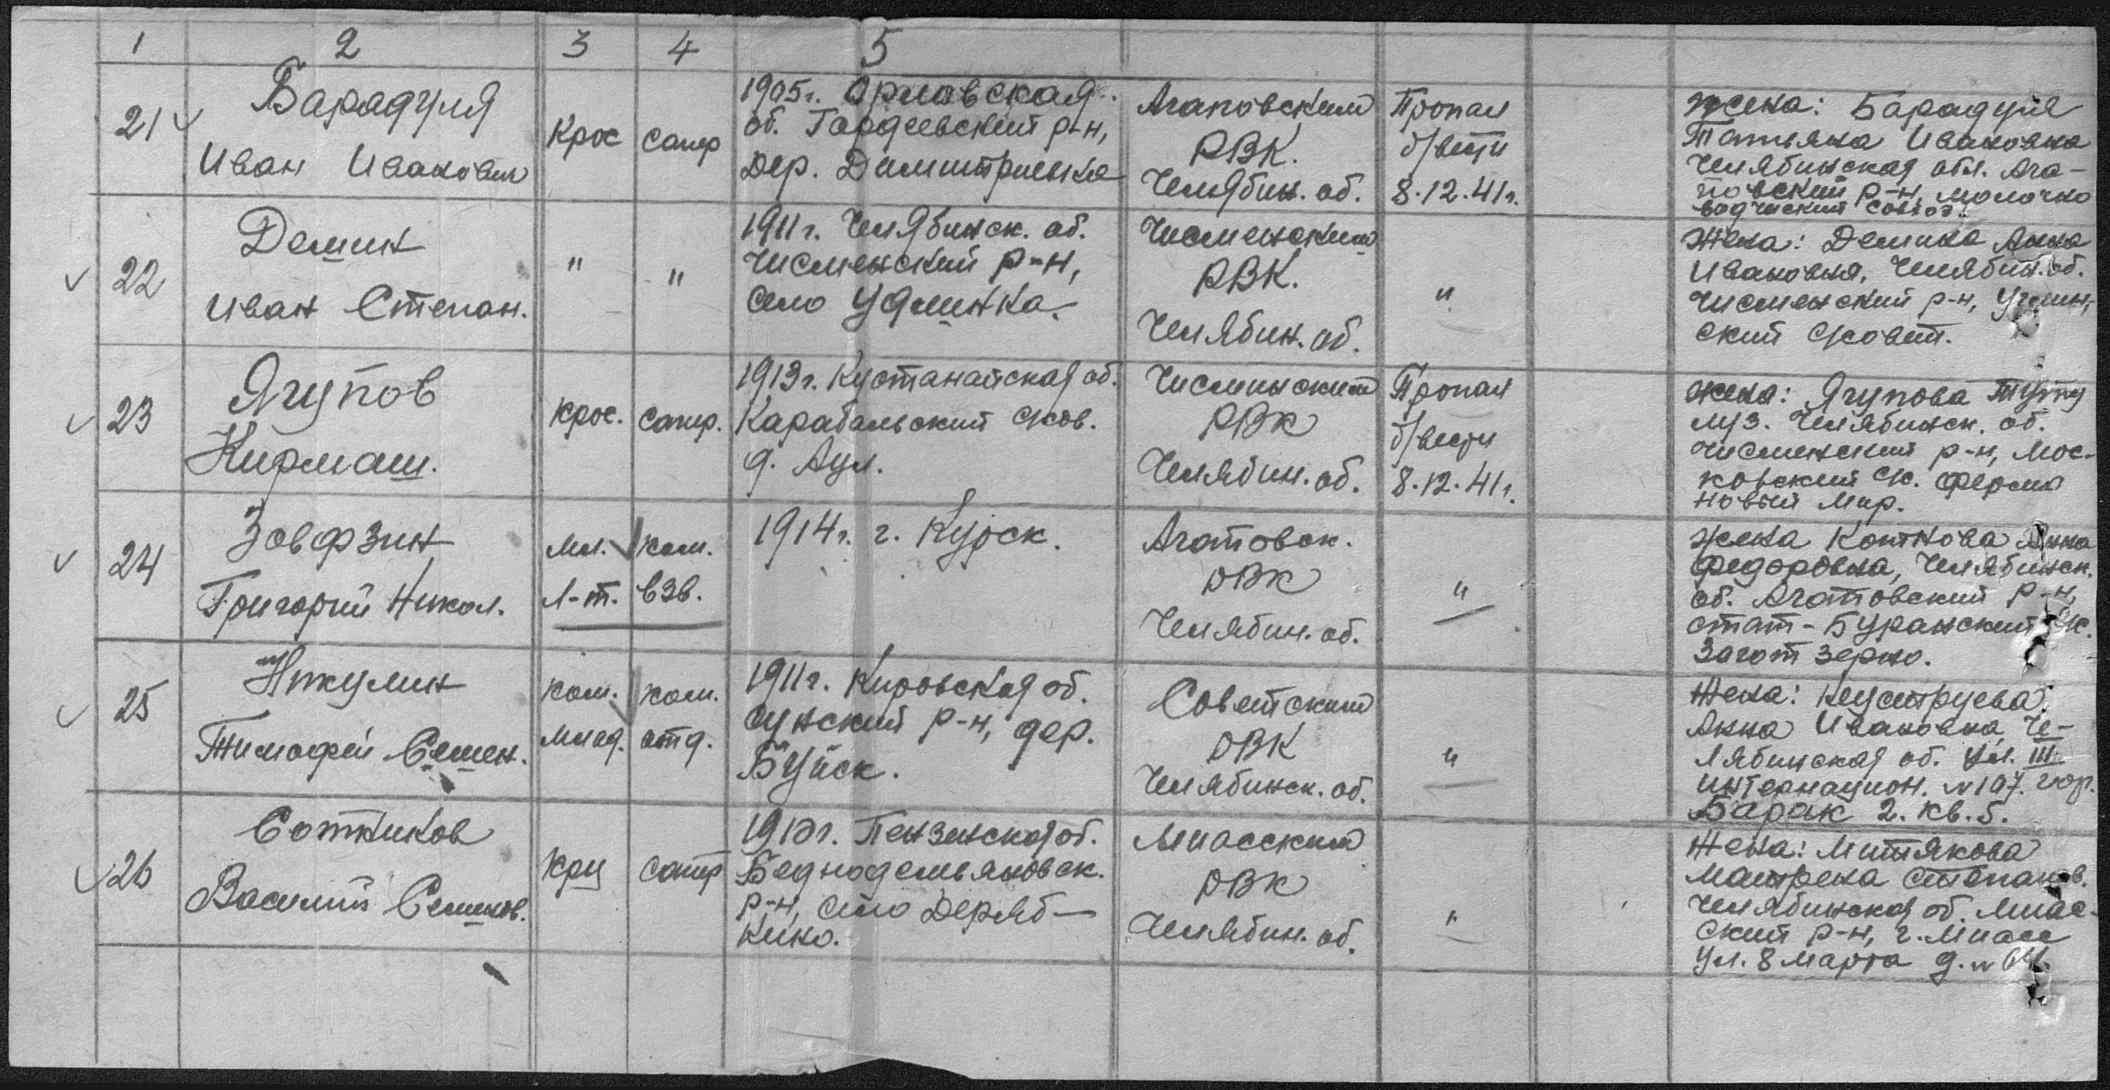 1 2 3 4 5
21 Барадуля Иван Иванович
Крос сапер
1905г. Орловская
об. Гордеевский р-н,
дер. Димитриенка
Агаповским
РВК.
Челябин. об.
Пропал
б/вести
8.12.41г.
жена: Барадуля
Татьяна Ивановна
Челябинская обл. Ага-
повский р-н, молочно
водческий совхоз.
22 Демин
Иван Степан.
" "
1911г. Челябинск. об.
Чисменский р-н,
село Удлинка.
Чисменским
РВК.
Челябин. об.
"
Жена: Демина Анна
Ивановна, Челябин. об.
Чисменский р-н, Углин-
ский с/совет.
23 Ягупов
Кирмаш.
Крос. сапер.
1913г. Кустанайская об.
Карабальский с/сов.
д. Аул.
Чисминским
РВК
Челябин. об.
Пропал
б/вести
8.12.41г.
жена: Ягупова
муз. Челябинск. об.
Чисменский р-н, Мос-
ковский с/с. ферма
Новый Мир.
24
Григорий Никол.
Мл. ком.
л-т. взв.
1914г. г. Курск.
Агатовск.
РВК
Челябин. об.
"
жена Коткова Анна
Федоровна, Челябинск.
об. Агатовский р-н,
стат-Буранский с/с.
Загот зерно.
25 Никулин
Тимофей Семен.
ком. ком.
млад. отд.
1911г. Кировская об.
сунский р-н, дер.
Буйск.
Советским
РВК
Челябинск. об.
"
Жена: Кеуструева
Анна Ивановна, Че-
лябинская об. ул. III
интернацион. №197. гор.
Барак 2. кв. 5.
26 Сотников
Василий Семенов.
Крц сапер
Пензинская об.
Беднодемьяновск.
р-н, село Деряб-
кино.
Миасским
РВК
Челябин. об.
"
Жена: Митякова
Матрена Степанов.
Челябинская об. Миас-
ский р-н, г. Миасс
ул. 8 марта д. №